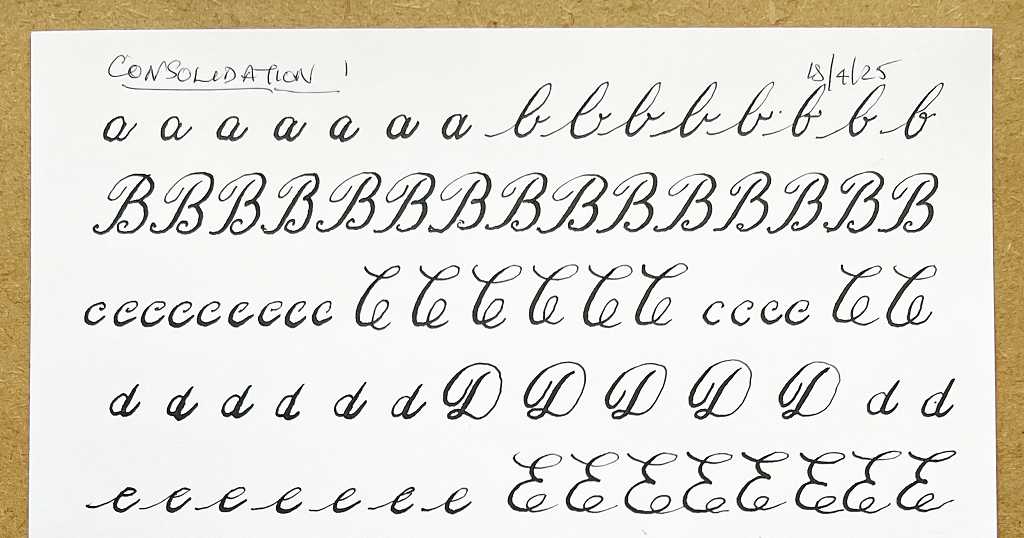 CONSOLIDATION 1 18/4/25
a a a a a a a b b b b b b b b
B B B B B B B B B B B B B B B
c c c c c c c c c C C C C C C c c c c C C
d d d d d d D D D D D d d
e e e e e e e E E E E E E E E